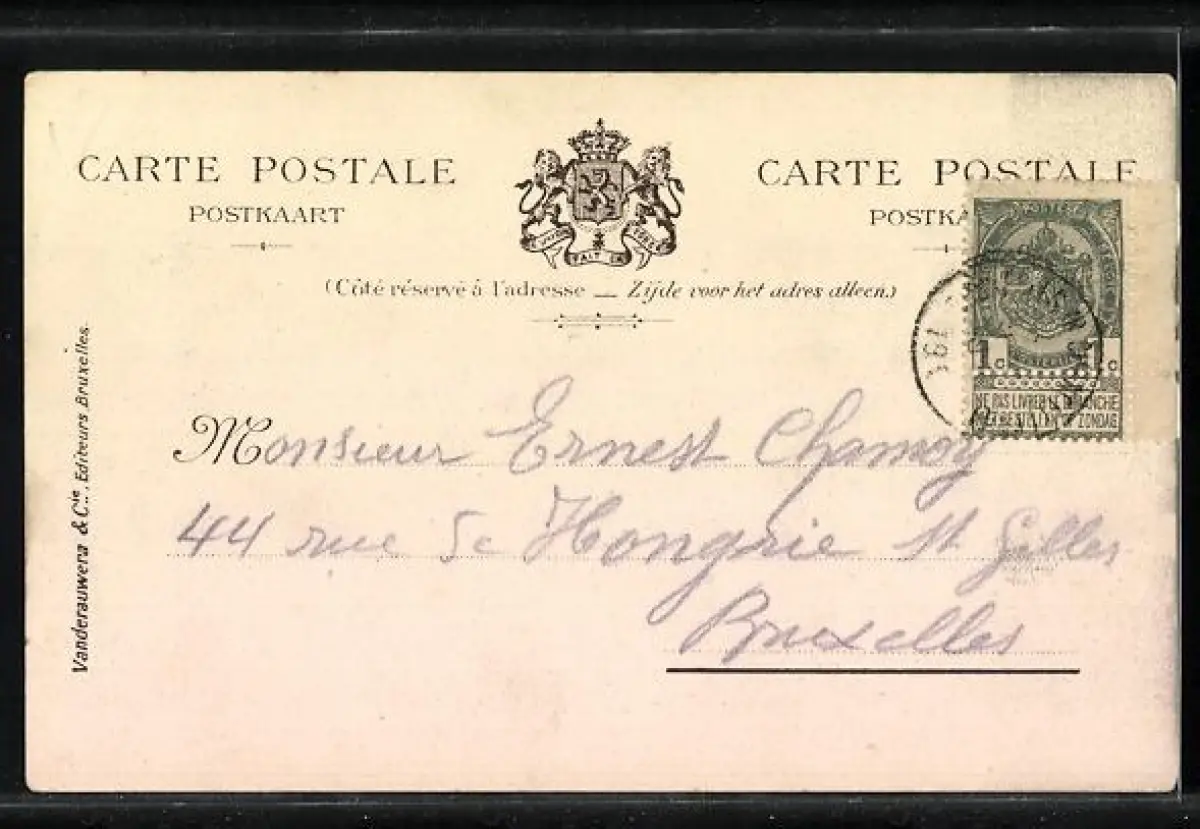 CARTE POSTALE
POSTKAART
CARTE POSTALE
POSTKA
(Côté réservé à l'adresse — Zijde voor het adres alleen.)
1c 1c
NE PAS LIVRER LE DIMANCHE
NIET BESTELLEN OP ZONDAG
Monsieur Ernest Chamoy
44 rue de Hongrie St Gilles
Bruxelles
Vanderauwera & Cie, Editeurs Bruxelles.